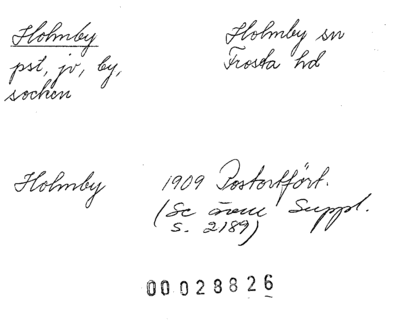 Holmby
Holmby sn
pst, jv, by,
Frosta hd
socken
Holmby
1909 Postortfört.
(Se även Suppl.
s. 2189)
00028826